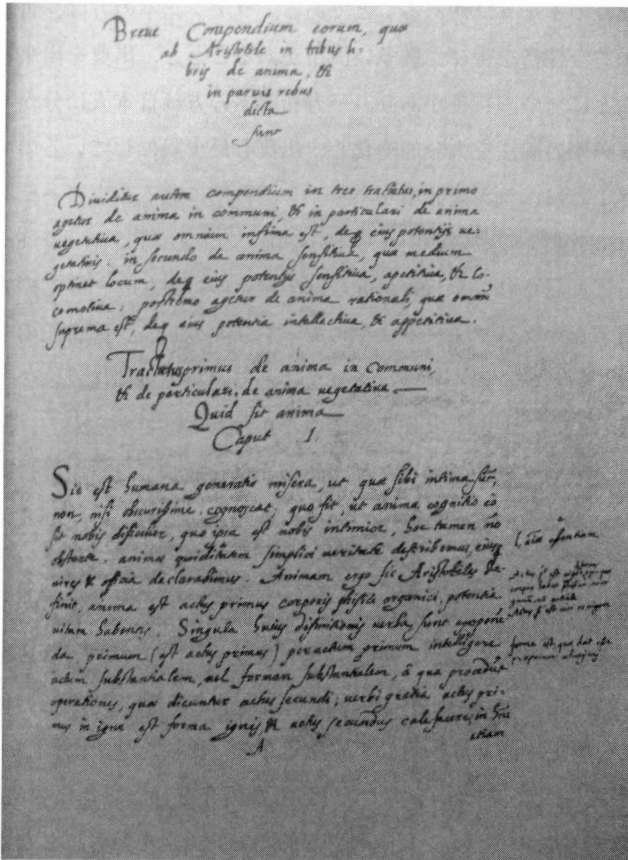 Breue Compendium eorum, quæ
ab Aristotele in tribus li-
bris de anima, &
in paruis rebus
dicta
sunt
Diuiditur autem compendium in tres tractatus, in primo
agetur de anima in communi, & in particulari de anima
uegetatiua, quæ omnium infima est, deq̃ eius potentijs ue-
getatiuis: in secundo de anima sensitiua, quæ medium
optinet locum, deq̃ eius potentijs sensitiua, apetitiua, & lo-
comotiua: postremo agetur de anima rationali, quæ omniũ
suprema est, deq̃ eius potentia intellectiua, & appetitiua.
Tractatus primus de anima in communi,
& de particulari, de anima uegetatiua.
Quid sit anima
Caput 1.
Sic est humana generatio misera, ut quæ sibi intima sunt,
non, nisi obscurissime cognoscat, quo fit, ut animæ cognitio eo
sit nobis dificilior, quo ipsa est nobis intimior, hoc tamen nõ
obstante animæ quiditatem simplici ueritate describemus, eiusq̃
uires & officia declarabimus. Animam ergo sic Aristoteles de-
finit, anima est actus primus corporis phisici organici, potentia
uitam habentis. Singula huius difinitionis uerba sunt exponẽ
da primum (est actus primus) per actum primum intelligere
actum substantialem, uel formam substantialem, à qua procedũt
operationes, quæ dicuntur actus secundi; uerbi gratia actus pri-
mus in igne est forma ignis, & actus secundus calefacere, in hoĩe
etiam
A
essentiam
forma est quæ dat esse